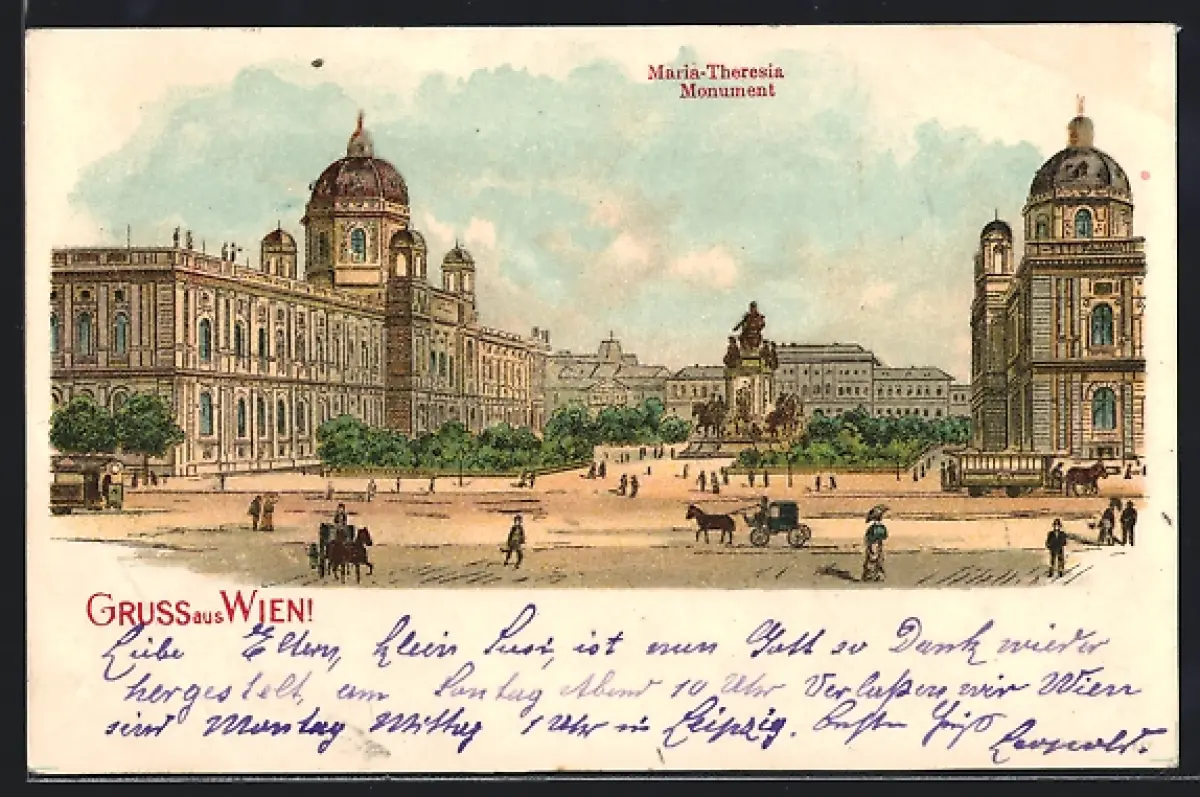 Maria-Theresia
Monument
GRUSS aus WIEN!
Liebe Eltern, klein Susi, ist nun Gott so Dank wieder
hergestelt, am Sontag Abend 10 Uhr Verlaßen wir Wien
sind Montag Mittag 1 Uhr in Leipzig. besten Gruß
Leopold.